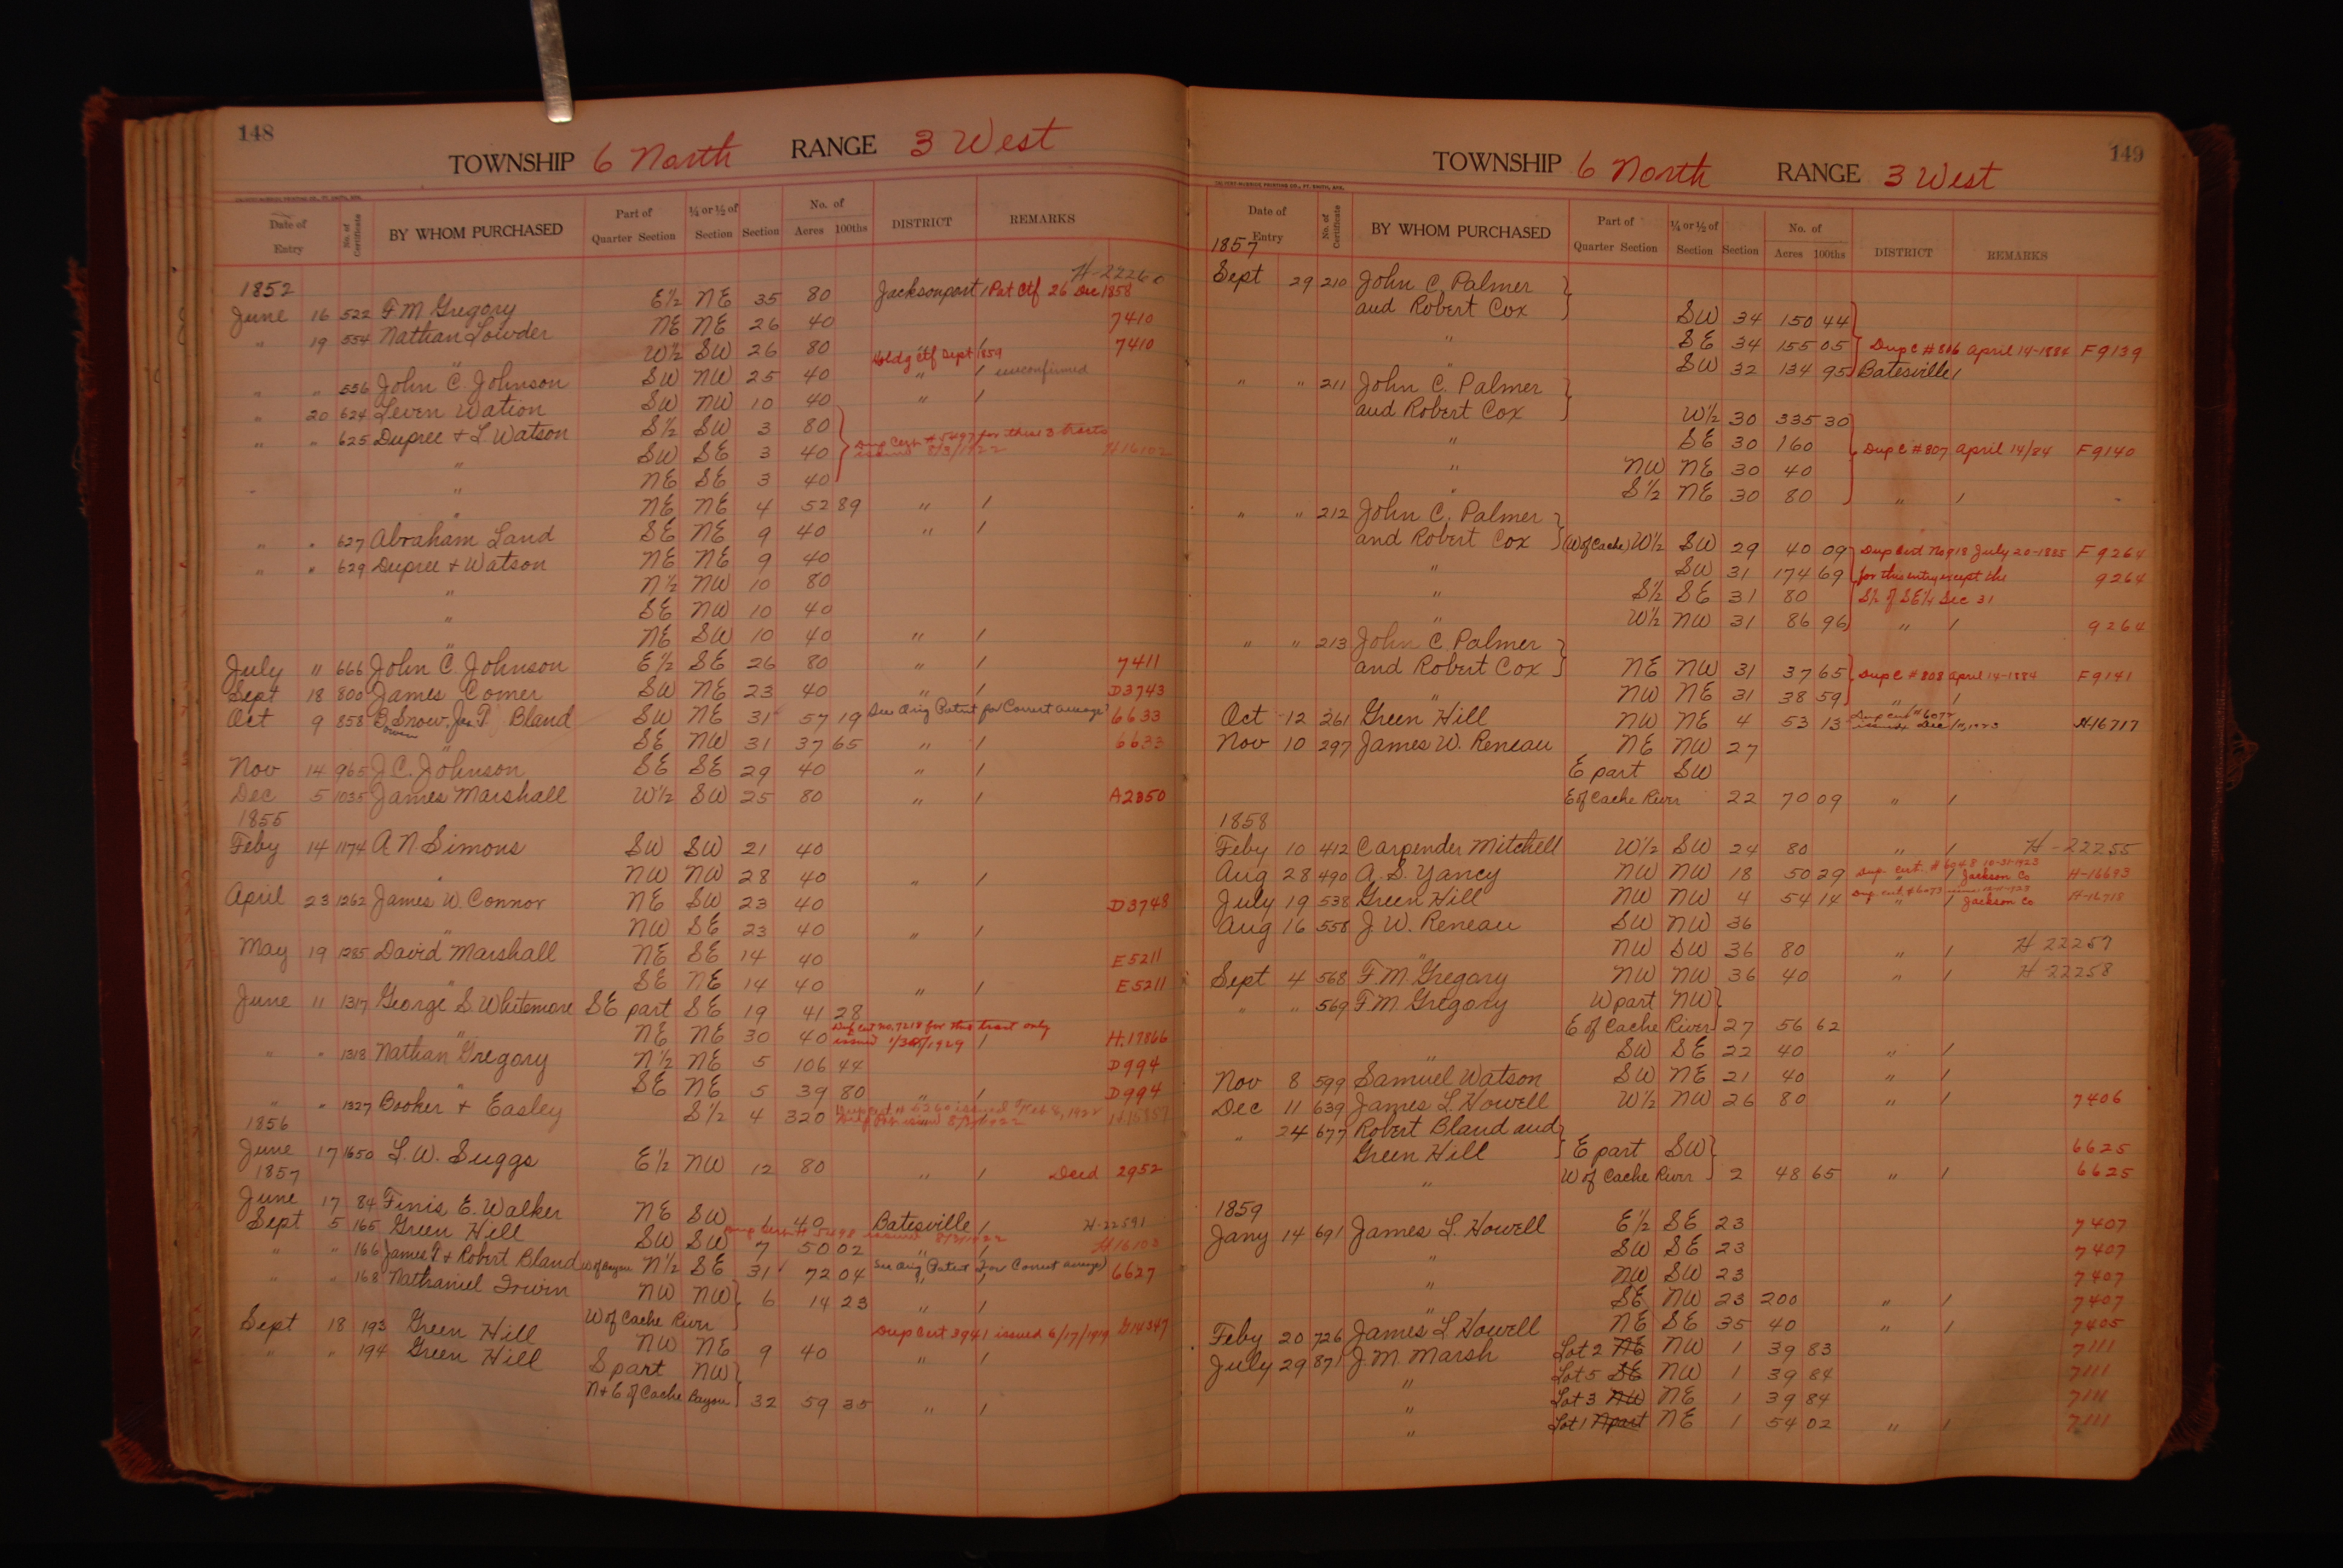 148
TOWNSHIP 6 North RANGE 3 West
Date of Entry No. of Certificate BY WHOM PURCHASED Part of Quarter Section ¼ or ½ of Section Section No. of Acres 100ths DISTRICT REMARKS
1852 H-22260
June 16 522 F. M. Gregory E½ NE 35 80 Jacksonport / Pat Ctf 26 Dec 1858
" 19 554 Nathan Lowder NE NE 26 40 7410
" W½ SW 26 80 / 7410
" " 556 John C. Johnson SW NW 25 40 " / unconfirmed
" 20 624 Leven Watson SW NW 10 40 " /
" " 625 Dupree & L. Watson S½ SW 3 80
" SW SE 3 40 Dup Cert # 5497 for these 3 tracts issued 8/3/1922 H16102
" NE SE 3 40
" NE NE 4 52 89 " /
" " 627 Abraham Land SE NE 9 40 " /
" " 629 Dupree & Watson NE NE 9 40
" N½ NW 10 80
" SE NW 10 40
" NE SW 10 40 " /
July " 666 John C. Johnson E½ SE 26 80 " / 7411
Sept 18 800 James Comer SW NE 23 40 " / D3743
Oct 9 858 B Snow, Jas T. Bland SW NE 31 57 19 See Orig Patent for Correct acreage 6633
" SE NW 31 37 65 " / 6633
Nov 14 965 J. C. Johnson SE SE 29 40 " /
Dec 5 1035 James Marshall W½ SW 25 80 " / A2350
1855
Feby 14 1174 A N. Simons SW SW 21 40
" NW NW 28 40 " /
April 23 1262 James W. Connor NE SW 23 40 D3748
" NW SE 23 40 " /
May 19 1285 David Marshall NE SE 14 40 E5211
" SE NE 14 40 " / E5211
June 11 1317 George S. Whitemore SE part SE 19 41 28
" NE NE 30 40 Dup Cert no. 7218 for this tract only issued 1/30/1929 / H.19866
" " 1318 Nathan Gregory N½ NE 5 106 44 D994
" SE NE 5 39 80 " / D994
" " 1327 Booker & Easley S½ 4 320
1856
June 17 1650 L. W. Suggs E½ NW 12 80 " / Deed 2952
1857
June 17 84 Finis E. Walker NE SW 1 40 Batesville / H-22591
Sept 5 165 Green Hill SW SW 7 50 02 Dup Cert # 5498 issued 8/3/1922 " / H16103
" " 166 James T. & Robert Bland W of Bayou N½ SE 31 72 04 See Orig Patent for Correct acreage) 6627
" " 168 Nathaniel Irwin NW NW 6 14 23 " /
W of Cache River
Sept 18 193 Green Hill NW NE 9 40 Dup Cert 3941 issued 6/17/1919 G14347
" " 194 Green Hill S part NW
N & E of Cache Bayou 32 59 35 " /
149
TOWNSHIP 6 North RANGE 3 West
Date of Entry No. of Certificate BY WHOM PURCHASED Part of Quarter Section ¼ or ½ of Section Section No. of Acres 100ths DISTRICT REMARKS
1857
Sept 29 210 John C. Palmer
and Robert Cox SW 34 150 44
" SE 34 155 05 Dup C # 806 April 14-1884 F9139
" SW 32 134 95 Batesville /
" " 211 John C. Palmer
and Robert Cox W½ 30 335 30
" SE 30 160 Dup C # 807 April 14/84 F9140
" NW NE 30 40
" S½ NE 30 80 " /
" " 212 John C. Palmer
and Robert Cox (W of Cache) W½ SW 29 40 09 Dup Cert No 918 July 20-1885 F 9264
" SW 31 174 69 for this entry except the 9264
" S½ SE 31 80 S½ of SE¼ Sec 31
" W½ NW 31 86 96 " / 9264
" " 213 John C Palmer
and Robert Cox NE NW 31 37 65 Dup C # 808 April 14-1884 F9141
" NW NE 31 38 59 " /
Oct 12 261 Green Hill NW NE 4 53 13 H-16717
Nov 10 297 James W. Reneau NE NW 27
E part SW
E of Cache River 22 70 09 " /
1858
Feby 10 412 Carpender Mitchell W½ SW 24 80 " / H-22255
Aug 28 490 A. S. Yancy NW NW 18 50 29 Dup. Cert. # 6048 10-31-1923 Jackson Co H-16693
July 19 538 Green Hill NW NW 4 54 14 Dup. Cert # 6073 Jackson Co H-16718
Aug 16 558 J. W. Reneau SW NW 36
" NW SW 36 80 " / H 22257
Sept 4 568 F. M. Gregory NW NW 36 40 " / H 22258
" " 569 F. M. Gregory W part NW
E of Cache River 27 56 62
" SW SE 22 40 " /
Nov 8 599 Samuel Watson SW NE 21 40 " /
Dec 11 639 James L. Howell W½ NW 26 80 " / 7406
" 24 677 Robert Bland and
Green Hill E part SW 6625
" W of Cache River 2 48 65 " / 6625
1859
Jany 14 691 James L. Howell E½ SE 23 7407
" SW SE 23 7407
" NW SW 23 7407
" SE NW 23 200 " / 7407
Feby 20 726 James L Howell NE SE 35 40 " / 7405
July 29 871 J. M. Marsh Lot 2 NE NW 1 39 83 7111
" Lot 5 SE NW 1 39 84 7111
" Lot 3 NW NE 1 39 84 7111
" Lot 1 N part NE 1 54 02 " / 7111